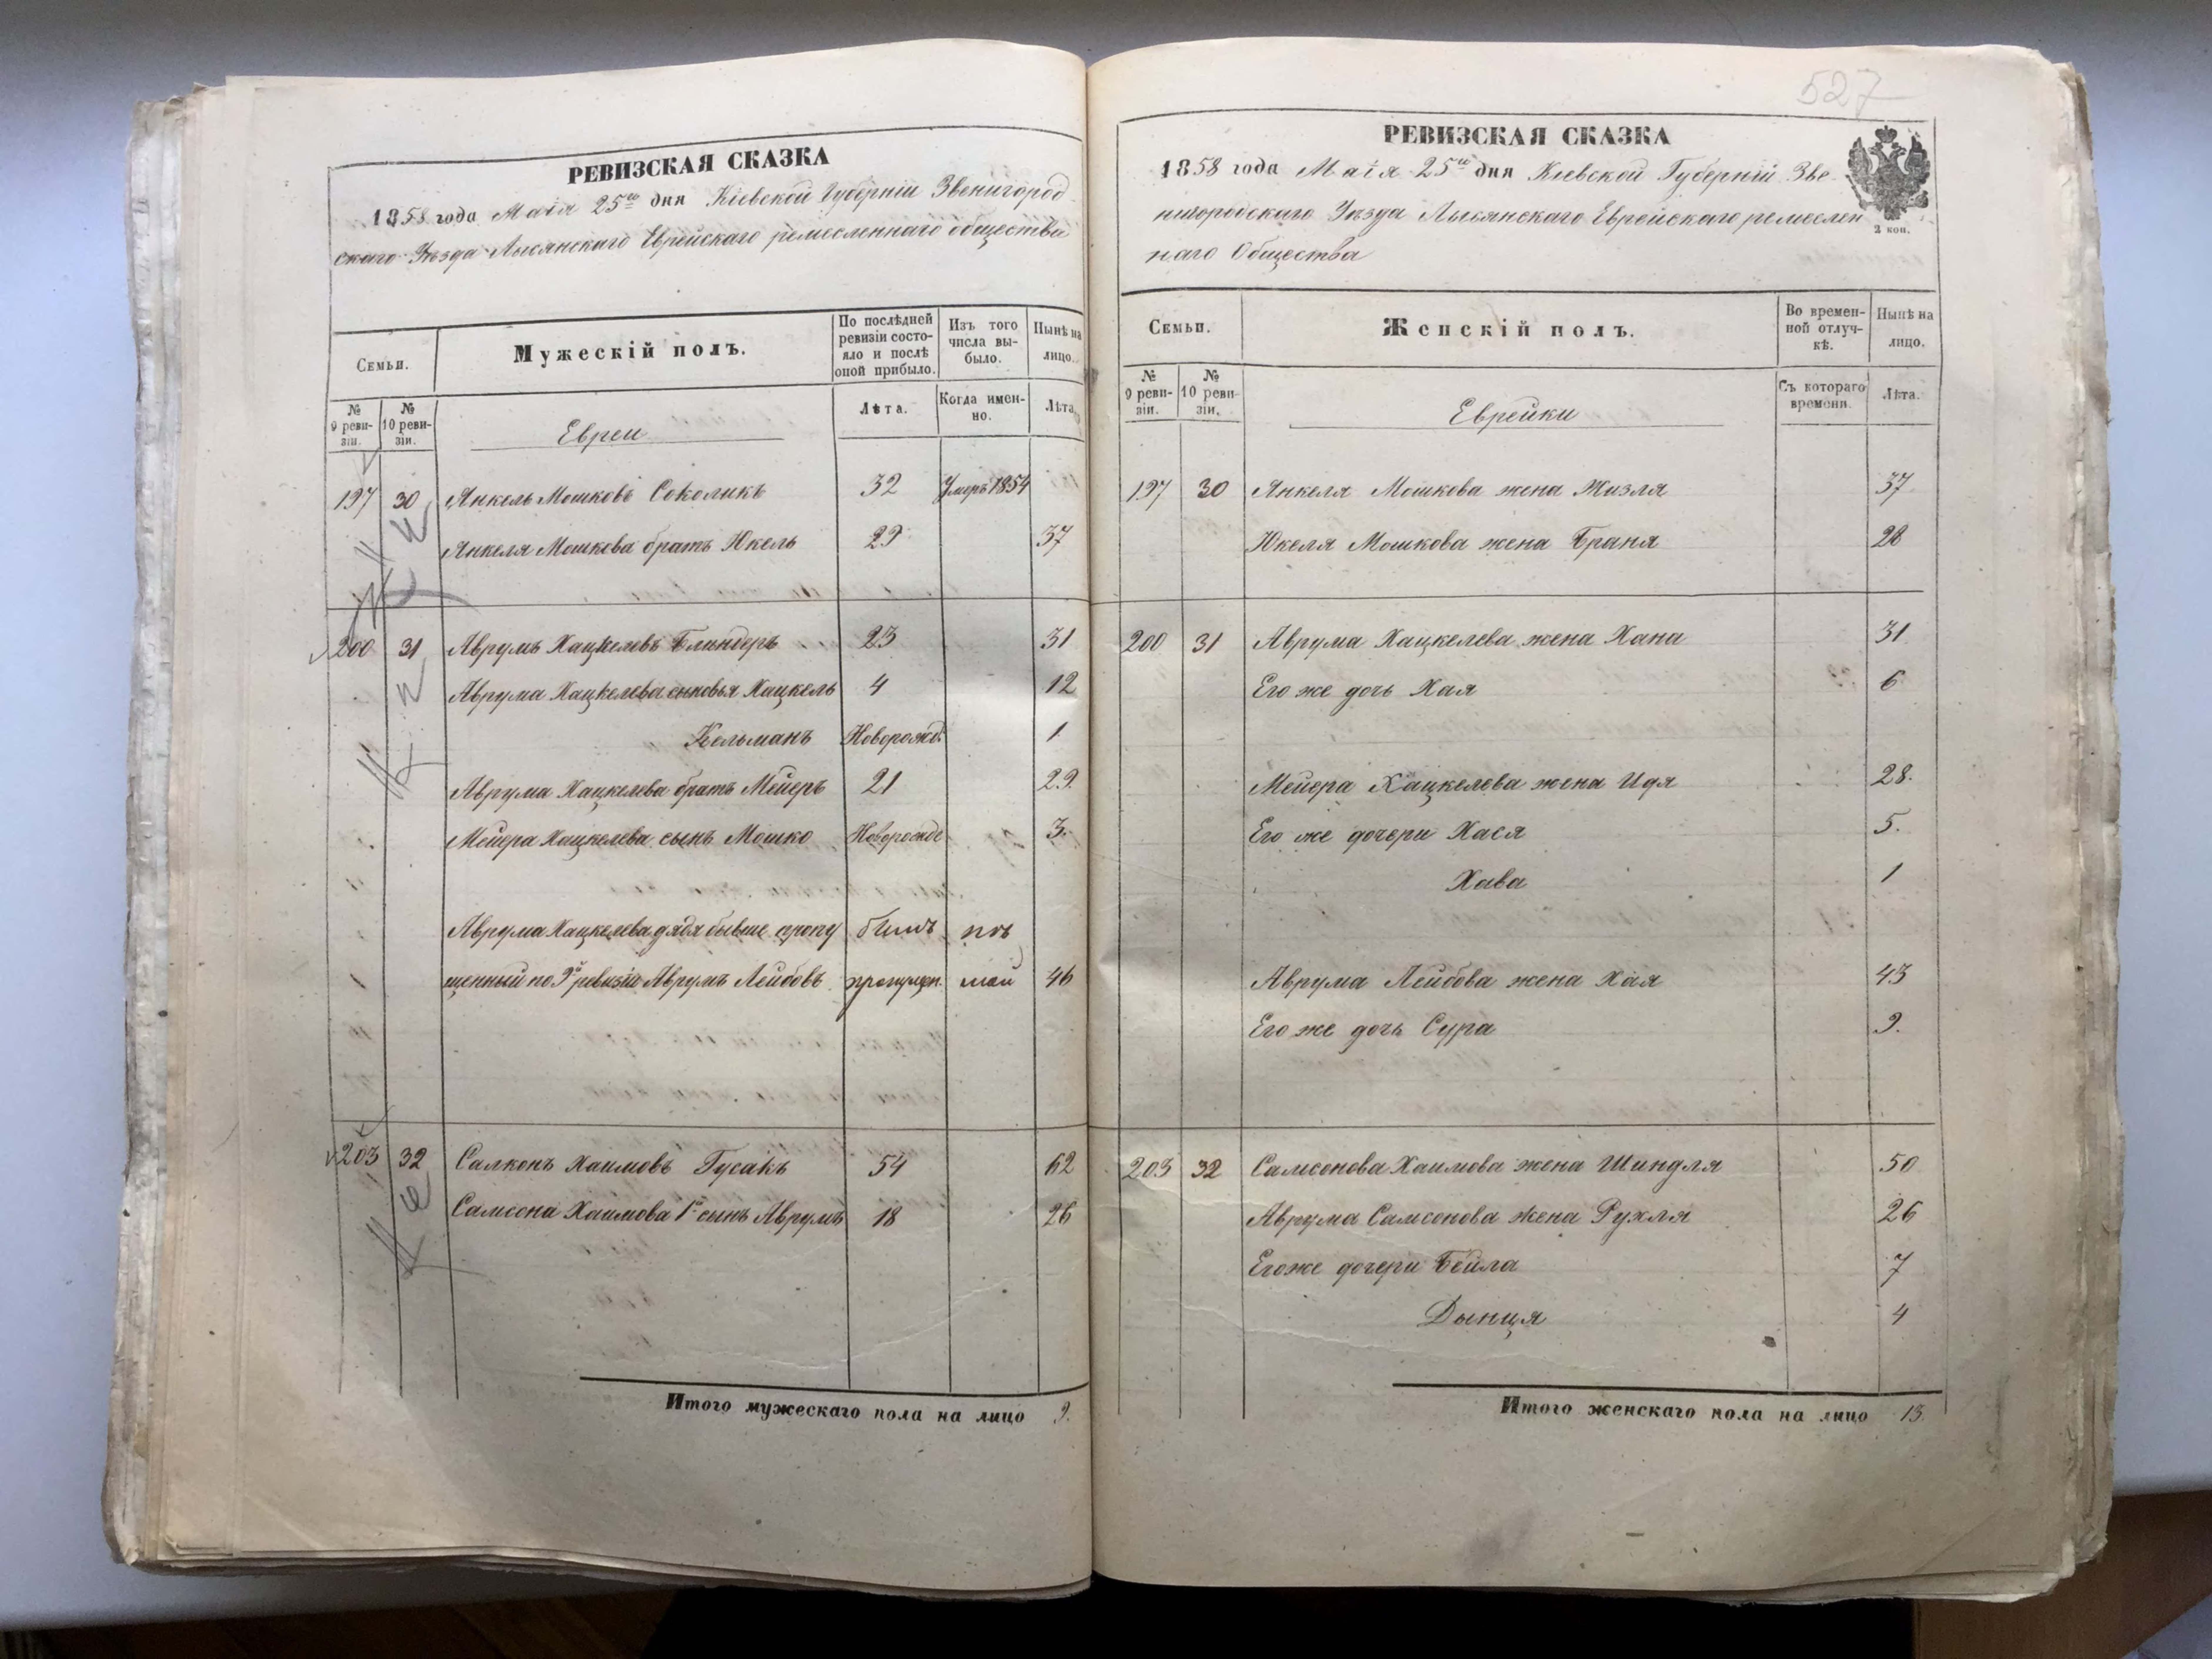 РЕВИЗСКАЯ СКАЗКА
1858 года Маія 25го дня Кіевской Губерніи Звенигород
скаго Уѣзда Лысянскаго Еврейскаго ремесленнаго общества
Семьи.
Мужескій полъ.
По послѣдней ревизіи состо-
яло и послѣ
оной прибыло.
Изъ того
числа вы-
было.
Нынѣ на
лицо.
№ 9 реви-
зіи.
№ 10 реви-
зіи.
Евреи
Лѣта.
Когда имен-
но.
Лѣта
197 30 Янкель Мошковъ Соколикъ 32 Умеръ 1854
Янкеля Мошкова братъ Юкель 29 37
200 31 Аврумъ Хацкелевъ Блиндеръ 23 31
Аврума Хацкелева сыновья Хацкель 4 12
Кельманъ Новорожд. 1
Аврума Хацкелева братъ Мейеръ 21 29.
Мейера Хацкелева сынъ Мошко Новорожде 3.
Аврума Хацкелева дядя бывше пропу
щенный по 9й ревизіи Аврумъ Лейбовъ пропущен. 46
203 32 Салконъ Хаимовъ Гусакъ 54 62
Самсона Хаимова 1го сынъ Аврумъ 18 26
Итого мужескаго пола на лицо 9.
527
РЕВИЗСКАЯ СКАЗКА
1858 года Маія 25го дня Кіевской Губерніи Зве
нигородскаго Уѣзда Лысянскаго Еврейскаго ремеслен
наго Общества
2 коп.
Семьи.
Женскій полъ.
Во времен-
ной отлуч-
кѣ.
Нынѣ на
лицо.
№ 9 реви-
зіи.
№ 10 реви-
зіи.
Еврейки
Съ котораго
времени.
Лѣта.
197 30 Янкеля Мошкова жена Жизля 37
Юкеля Мошкова жена Браня 28
200 31 Аврума Хацкелева жена Хана 31
Его же дочь Хая 6
Мейера Хацкелева жена Идя 28.
Его же дочери Хася 5.
Хава 1
Аврума Лейбова жена Хая 43
Его же дочь Сура 9.
203 32 Самсонова Хаимова жена Шиндля 50
Аврума Самсонова жена Рухля 26
Его же дочери Бейла 7
Дынця 4
Итого женскаго пола на лицо 13.